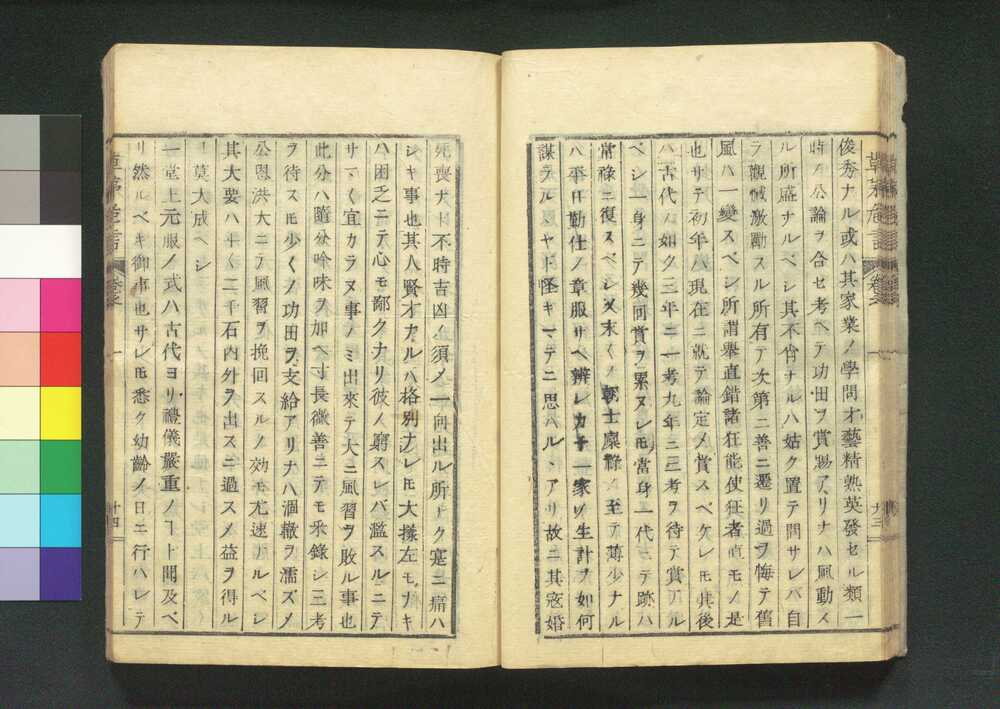 俊秀ナル或ハ其家業ノ學問才藝精熟英發セル類一
時ノ公論ヲ合セ考ヘテ功田ヲ賞賜アリナハ風動ス
ル所盛ナルベシ其不肖ナルハ姑ク置テ問サレバ自
ラ觀憾激勵スル所有テ次第ニ善ニ遷リ過ヲ悔テ舊
風ハ一變スベシ所謂舉直錯諸狂能使狂者直モノ是
也サテ初年ハ現在ニ就テ論定メ賞スベケレモ其後
ハ古代ノ如ク三年ニ一考九年ニ三考ヲ待テ賞アル
ベシ一身ニテ幾回賞ヲ累ヌレモ當身一代ニテ跡ハ
常祿ニ復スベシ又末々ノ朝士廩祿ノ至テ薄少ナル
ハ平日勤仕ノ章服サヘ辨レカ子一家ノ生計ヲ如何
謀ラルヽヤト怪キマテニ思ハルヽアリ故ニ其冦婚
死喪ナト不時吉凶ノ須ノ一向出ル所ナク寔ニ痛ハ
シキ事也其人賢才ナルハ格別ナレモ大樣左モナキ
ハ困乏ニテ心モ鄙クナリ彼ノ窮スレバ濫スルニテ
サマ〱宜カラヌ事ノミ出來テ大ニ風習ヲ敗ル事也
此分ハ隨分吟味ヲ加ヘ寸長微善ニテモ釆錄シ三考
ヲ待スモ少〱ノ功田ヲ支給アリナハ涸轍ヲ濡ズノ
公恩洪大ニテ風習ヲ挽回スルノ効モ尤速ナルベシ
其大要ハ十〱二千石内外ヲ出スニ過スメ益ヲ得ル
ヿ莫大成ヘシ
一堂上元服ノ式ハ古代ヨリ禮儀嚴重ノヿト聞及ベ
リ然ルベキ御事也サレモ悉ク幼齡ノ日ニ行ハレテ
草茅危言
卷之一
十三
草茅危言
卷之一
十四